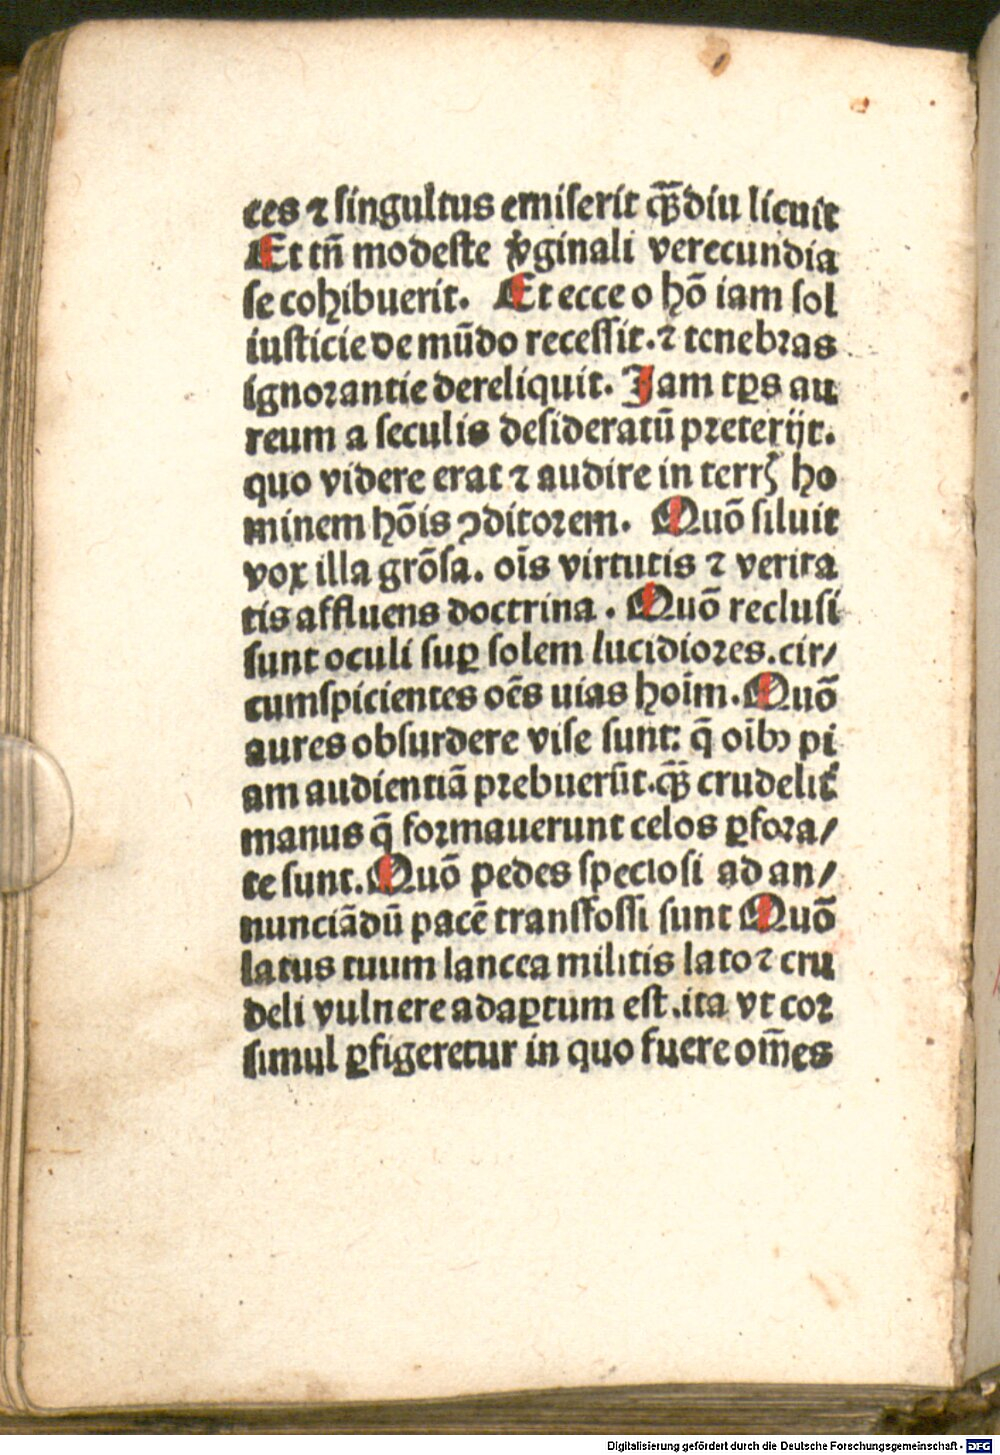 ces ⁊ singultus emiserit qȝ̄diu licuit
Et tn̄ modeste v̓ginali verecundia
se cohibuerit. Et ecce o hō iam sol
iusticie de mūdo recessit.⁊ tenebras
ignorantie dereliquit. Jam tꝑs au
reum a seculis desideratū preterijt.
quo videre erat ⁊ audire in terrꝭ ho
minem hōis ꝯditorem. Quō siluit
vox illa grōsa. oīs virtutis ⁊ verita
tis affluens doctrina. Quō reclusi
sunt oculi suꝑ solem lucidiores.cir/
cumspicientes oēs uias hoīm. Quō
aures obsurdere vise sunt: q̄ oībꝰ pi
am audientiā prebuerūt.qȝ̄ crudelit̓
manus q̄ formauerunt celos ꝑfora/
te sunt. Quō pedes speciosi ad an/
nunciādū pacē transfossi sunt Quō
latus tuum lancea militis lato ⁊ cru
deli vulnere adaꝑtum est.ita vt cor
simul ꝑfigeretur in quo fuere om̄es
Digitalisierung gefördert durch die Deutsche Forschungsgemeinschaft - DFG